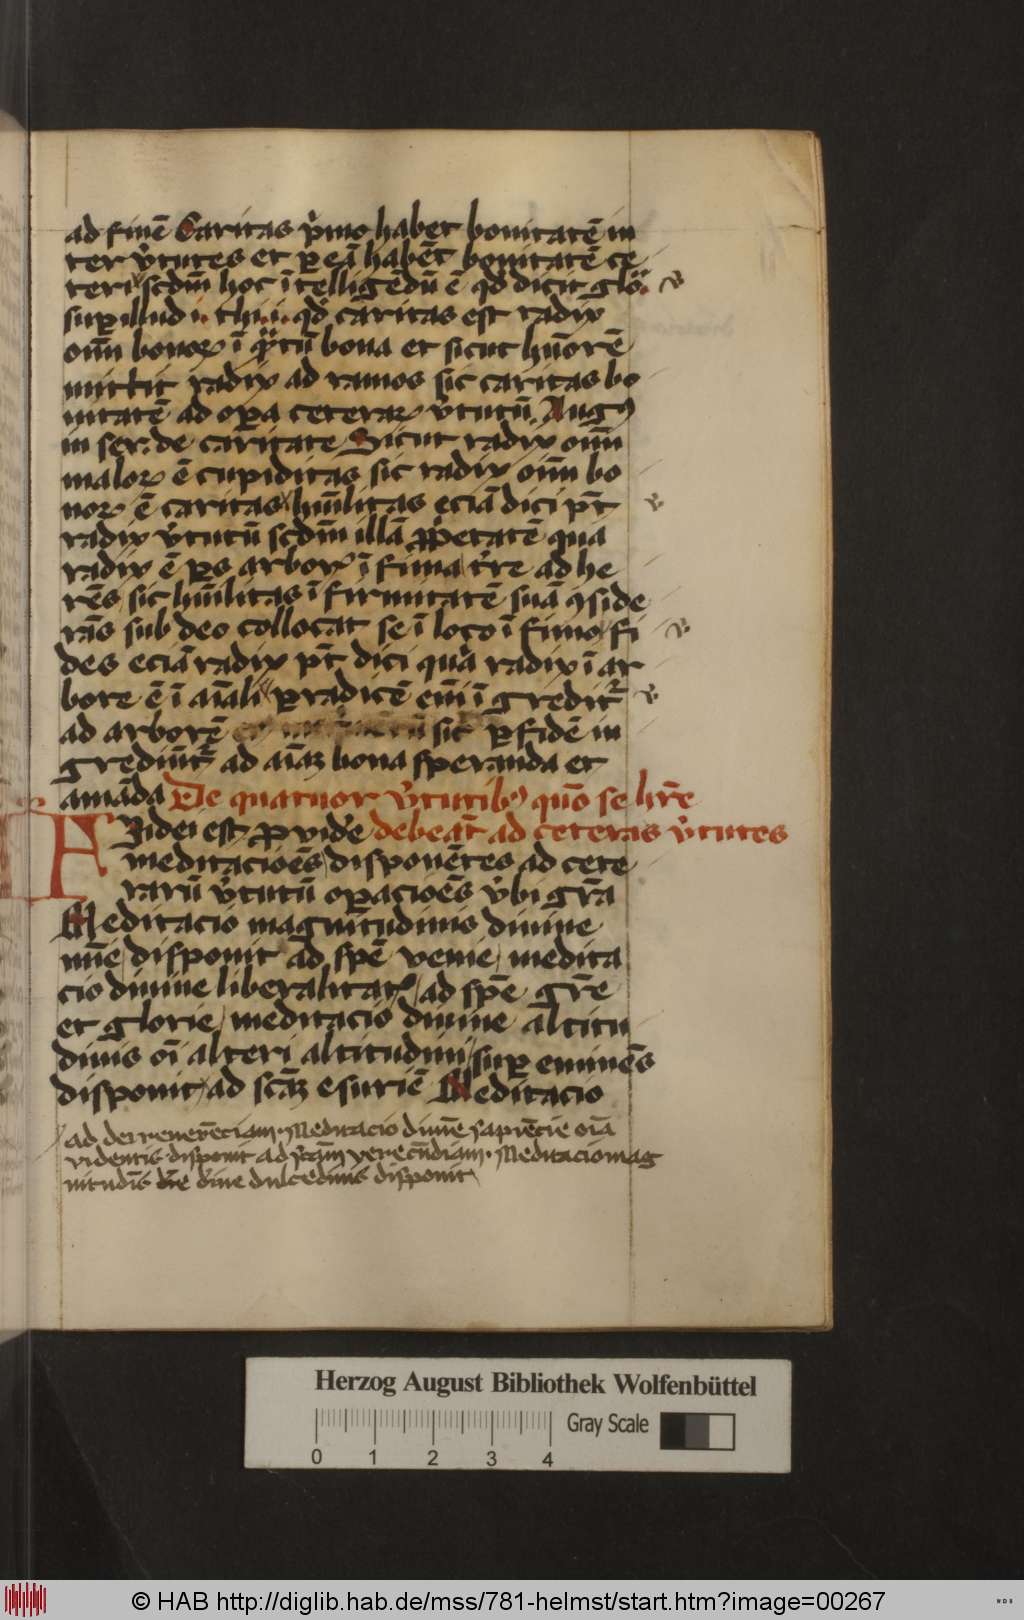 ad finē Caritas p̾mo habet bonitatē in
ter v̾tutes et ꝑ eā habēt bonitatē ce
teri scdm̄ hoc ītelligēdū ē qd dicit glo.
suꝑ illud i. thi. i. qd caritas est radix
oīm bonoꝝ ī q̄ntū bona et sicut hūorē
mittit radix ad ramos sic caritas bo
nitatē ad oꝑa ceteraꝝ v̾tutū Augꝰ
in ser. de caritate Sicut radix oīm
maloꝝ ē cupiditas sic radix oīm bo
noꝝ ē caritas hūilitas eciā dici pt̄
radix v̾tutū scdm̄ illā ꝓp̾etatē qua
radix ē ꝑs arboꝝ ī fima t̾re ad he
rēs sic hūilitas ī firmitatē suā ꝯside
rās sub deo collocat se ī loco īfimo fi
des eciā radix pt̄ dici quā radix ī ar
bore ē ī aīali ꝑ radicē em̄ īgredit᷑
ad arborē sic ꝑ fidē in
grediūt᷑ ad aīaꝫ bona speranda et
amāda De quatuor v̾tutibꝰ quō se hr̄e
Fidei est ꝓvid'e debeāt ad ceteras v̾tutes
meditacioēs disponētes ad cete
rarū v̾tutū oꝑacioēs v̾bi gr̄a
Meditacio magnītudinis divine
mīe disponit ad spē venie medita
cio divine liberalitatꝭ ad spē gr̄e
et glorie meditacio divine altitu
dinis oī alteri altitudini suꝑ eminēs
disponit ad scāꝫ esuriē Meditacio
ad dei reverēciam. Meditacio divīe sapiēcie oīa
videntis disponit ad scām verecūdiam. Meditacio mag
nitudis dīne dulcedinis disponit
Herzog August Bibliothek Wolfenbüttel
Gray Scale
0 1 2 3 4
© HAB http://diglib.hab.de/mss/781-helmst/start.htm?image=00267